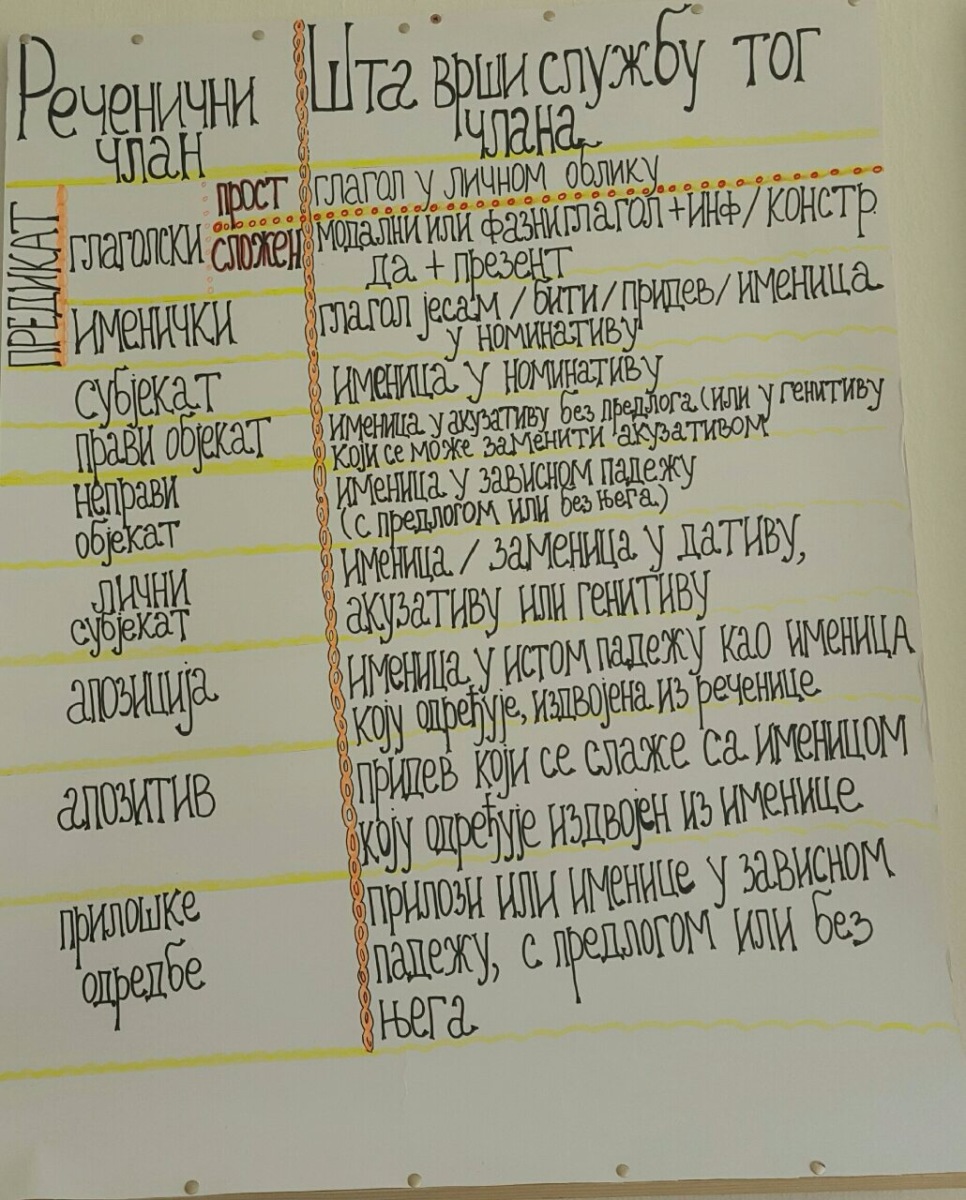 Реченични члан
Шта врши службу тог члана
ПРЕДИКАТ
глаголски
прост
глагол у личном облику
сложен
модални или фазни глагол + инф/констр.
да + презент
именички
глагол јесам / бити/придев/именица
у номинативу
субјекат
именица у номинативу
прави објекат
именица у акузативу без предлога (или у генитиву
који се може заменити акузативом
неправи
објекат
именица у зависном падежу
(с предлогом или без њега)
лични
субјекат
именица / заменица у дативу,
акузативу или генитиву
апозиција
именица у истом падежу као именица
коју одређује, издвојена из реченице
апозитив
придев који се слаже са именицом
коју одређује издвојен из именице
прилошке
одредбе
прилози или именице у зависном
падежу, с предлогом или без
њега